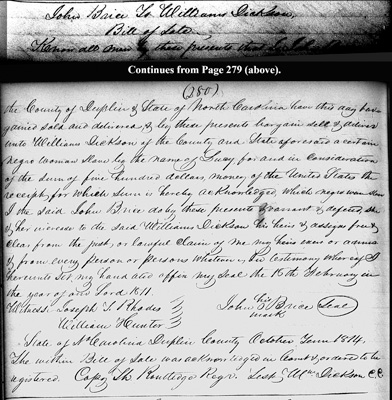 John Brice To Williams Dickson,
Bill of Sale
Know all men by these presents that I John
Continues from Page 279 (above).
(280)
the County of Duplin & State of North Carolina have this day bar-
gained Sold and delivered & by these presents bargain sell & deliver
unto Williams Dickson of the County and State aforesaid a certain
negro Woman Slave by the name of Susy for and in Consideration
of the sum of five hundred dollars, money of the United States the
receipt, for which Sum is hereby acknowledged, which negro woman
I the said John Brice do by these presents warrant & defend, she
& her increase to the said Williams Dickson his heirs & assigns free &
Clear from the just, or lawful Claim of me my heirs exrs or admrs
& from every person or persons whatever, In testimony whereof I
hereunto set, my hand and affix my Seal the 16th February in
the year of our Lord 1811.
Witness. Joseph T. Rhodes
William Hunter
John his mark Brice Seal
State of N Carolina Duplin County October Term 1814.
The within Bill of Sale was acknowledged in Court & ordered to be
registered. Copy Th Routledge Regr. Test Wm Dickson C.C.